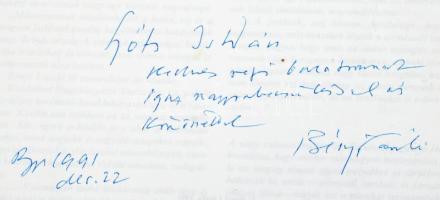 Szőts István
kedves régi barátomnak
igaz nagyrabecsüléssel és
köszönettel
Bp 1991
dec. 22